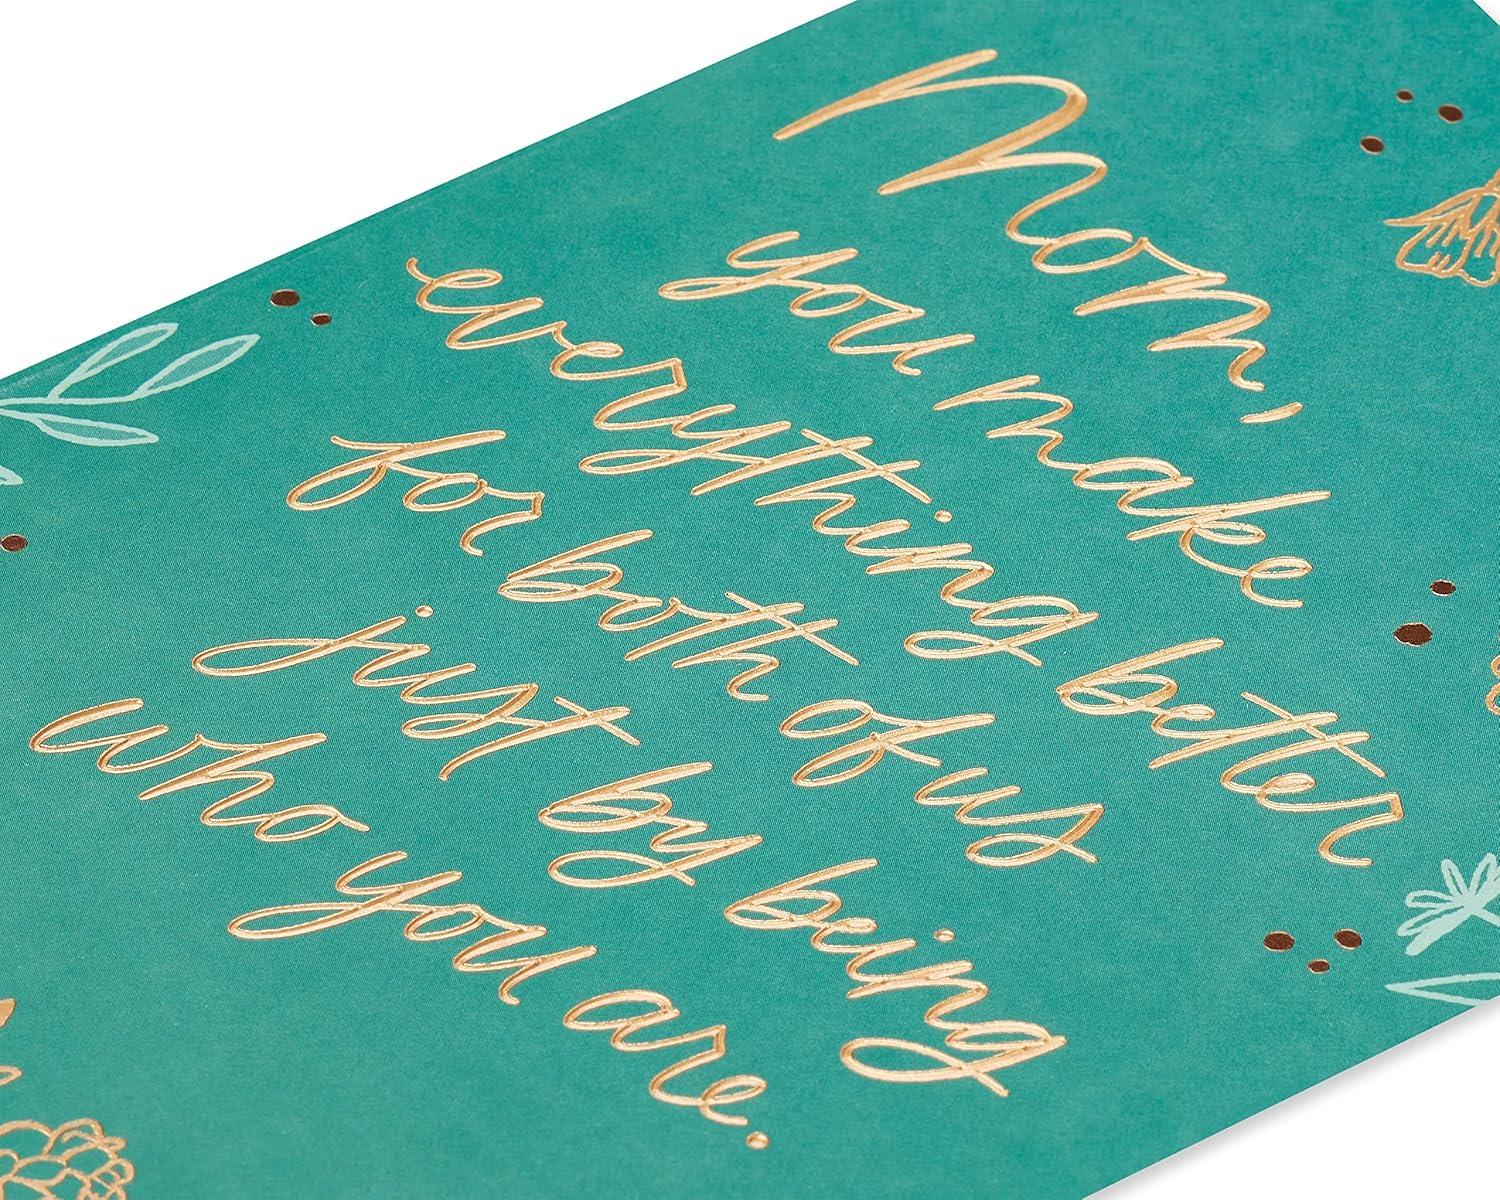 Mom,
you make
everything better
for both of us
just by being
who you are.